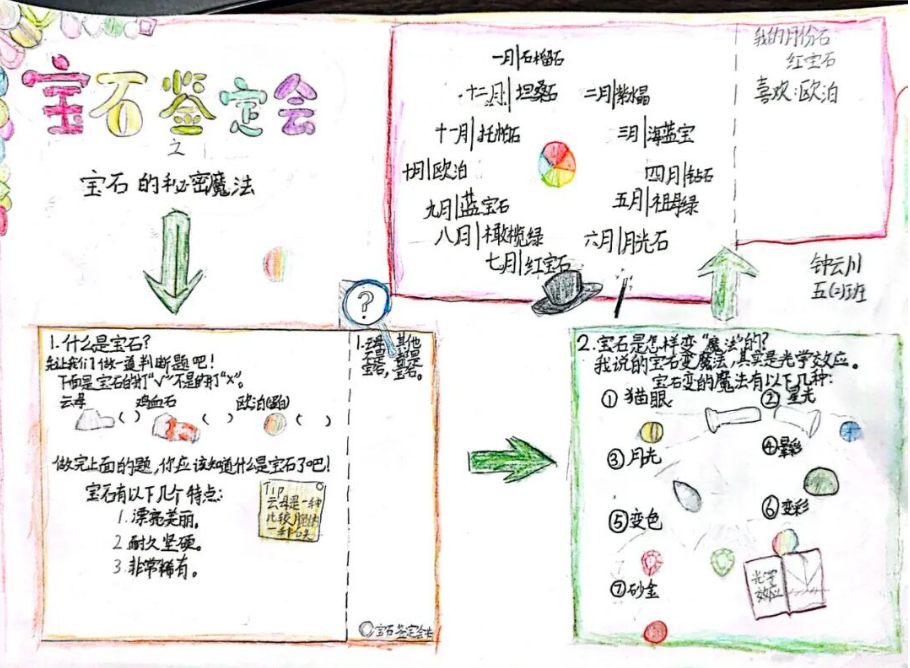 宝石鉴定会
之
宝石的秘密魔法
一月|石榴石
十二月|坦桑石
二月|紫水晶
十一月|托帕石
三月|海蓝宝
十月|欧泊
四月|钻石
九月|蓝宝石
五月|祖母绿
八月|橄榄绿
六月|月光石
七月|红宝石
我的月份石
红宝石
喜欢:欧泊
钟云川
五(2)班
?
1.什么是宝石?
先让我们做一道判断题吧!
下面是宝石的打“√”不是的打“×”。
云母 ( ) 鸡血石 ( ) 欧泊(蛋白) ( )
做完上面的题,你应该知道什么是宝石了吧!
宝石有以下几个特点:
1.漂亮美丽。
2.耐久坚硬。
3.非常稀有。
Tip
云母是一种
比较
一种石头
1.云母不是宝石,其他都是宝石。
宝石鉴定会
2.宝石是怎样变“魔法”的?
我说的宝石变魔法,其实是光学效应。
宝石变的魔法有以下几种:
①猫眼
②星光
③月光
④晕彩
⑤变色
⑥变彩
⑦砂金
光学
效应